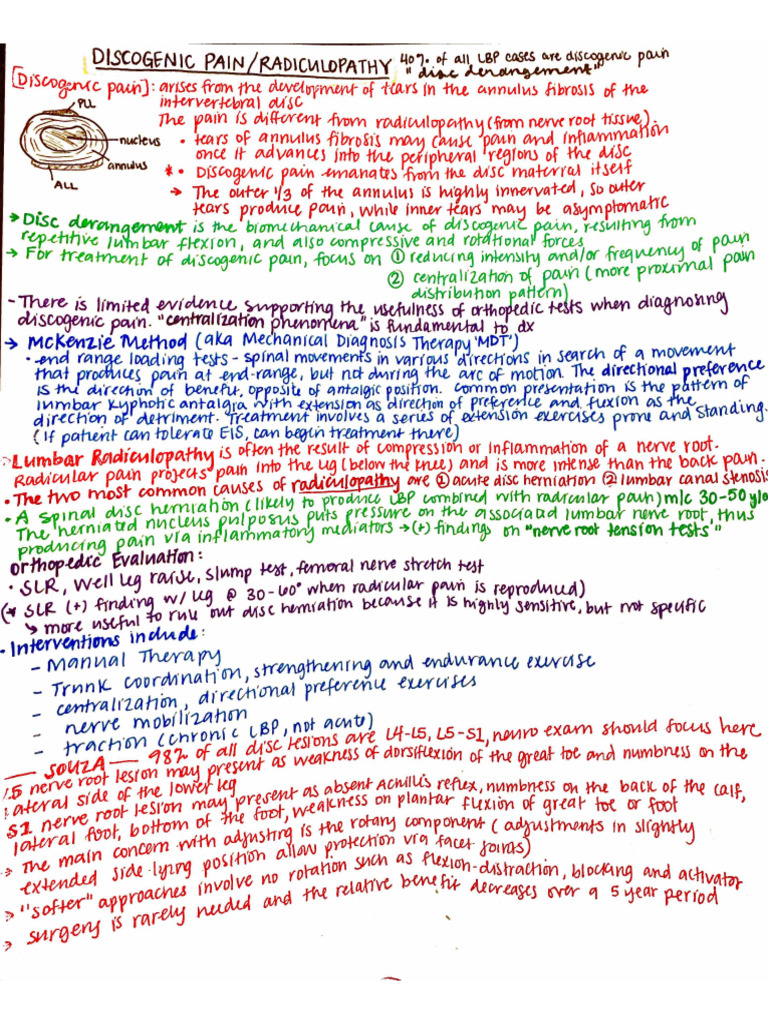 DISCOGENIC PAIN/RADICULOPATHY 40% of all LBP cases are discogenic pain
"disc derangement"
[Discogenic pain]: arises from the development of tears in the annulus fibrosis of the
intervertebral disc
PLL
nucleus
annulus
ALL
The pain is different from radiculopathy (from nerve root tissue).
• tears of annulus fibrosis may cause pain and inflammation
once it advances into the peripheral regions of the disc
* • Discogenic pain emanates from the disc material itself
→ The outer 1/3 of the annulus is highly innervated, so outer
tears produce pain, while inner tears may be asymptomatic
→ Disc derangement is the biomechanical cause of discogenic pain, resulting from
repetitive lumbar flexion, and also compressive and rotational forces
→ For treatment of discogenic pain, focus on ① reducing intensity and/or frequency of pain
② centralization of pain (more proximal pain
distribution pattern)
- There is limited evidence supporting the usefulness of orthopedic tests when diagnosing
discogenic pain. "centralization phenomena" is fundamental to dx
→ McKenzie Method (aka Mechanical Diagnosis Therapy 'MDT')
• end range loading tests - spinal movements in various directions in search of a movement
that produces pain at end-range, but not during the arc of motion. The directional preference
is the direction of benefit, opposite of antalgic position. Common presentation is the pattern of
lumbar kyphotic antalgia with extension as direction of preference and flexion as the
direction of detriment. Treatment involves a series of extension exercises prone and standing.
(If patient can tolerate EIS, can begin treatment there)
Lumbar Radiculopathy is often the result of compression or inflammation of a nerve root.
Radicular pain projects pain into the leg (below the knee) and is more intense than the back pain.
• The two most common causes of radiculopathy are ① acute disc herniation ② lumbar canal stenosis
• A spinal disc herniation (likely to produce LBP combined with radicular pain) m/c 30-50 ylo
The herniated nucleus pulposus puts pressure on the associated lumbar nerve root, thus
producing pain via inflammatory mediators → (+) findings on "nerve root tension tests"
Orthopedic Evaluation:
• SLR, Well leg raise, Slump test, femoral nerve stretch test
(* SLR (+) finding w/ leg @ 30-60° when radicular pain is reproduced)
↳ more useful to rule out disc herniation because it is highly sensitive, but not specific
• Interventions include:
- Manual Therapy
- Trunk coordination, strengthening and endurance exercise
- centralization, directional preference exercises
- nerve mobilization
- traction (chronic LBP, not acute)
— SOUZA — 98% of all disc lesions are L4-L5, L5-S1, neuro exam should focus here
L5 nerve root lesion may present as weakness of dorsiflexion of the great toe and numbness on the
lateral side of the lower leg
S1 nerve root lesion may present as absent Achillis reflex, numbness on the back of the calf,
lateral foot, bottom of the foot, weakness on plantar flexion of great toe or foot
→ The main concern with adjusting is the rotary component (adjustments in slightly
extended side-lying position allow protection via facet joints)
→ "softer" approaches involve no rotation such as flexion-distraction, blocking and activator
→ surgery is rarely needed and the relative benefit decreases over a 5 year period